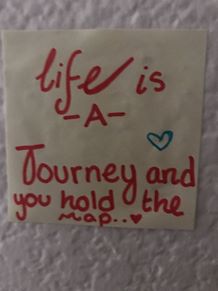 life is
-A-
Journey and
you hold the
map..♥